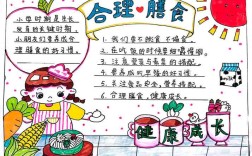 合理膳食
小学时期是生长
发育的关键时期,
小朋友们要养成合
理膳食的好习惯。
1、我们要不挑食不偏食
2、在吃饭的时候细嚼慢咽。
3、注意营养与易变的搭配。
4、营养成功早餐的好习惯。
5、关注食品安全,营养搭配。
6、合理膳食,健康成长。
健康成长